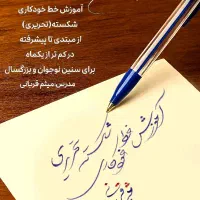 آموزش خط خودکاری
شکسته(تحریری)
از مبتدی تا پیشرفته
در کم تر از یکماه
برای سنین نوجوان و بزرگسال
مدرس: میثم قربانی
آموزش
خط خودکاری
شکسته تحریری